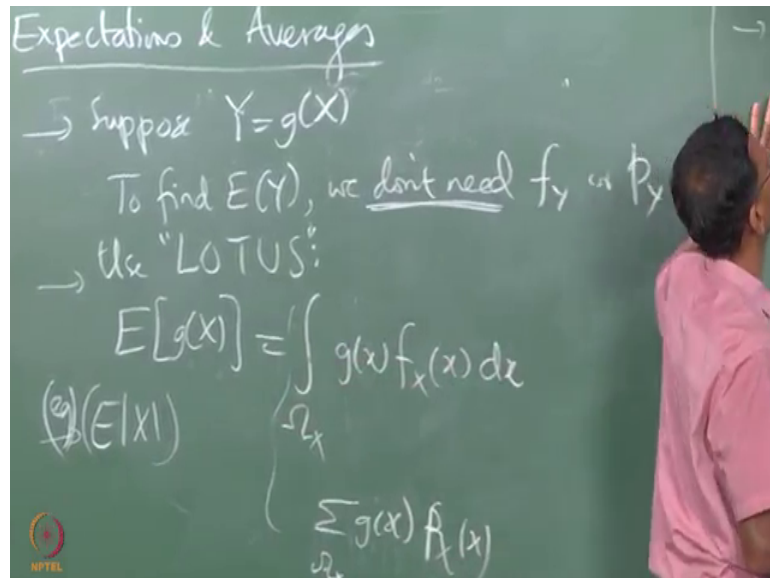 Expectations & Averages
→ Suppose Y = g(X)
To find E(Y), we don't need f_Y or p_Y
→ Use "LOTUS":
E[g(X)] = ∫_{Ω_X} g(x) f_X(x) dx
(eg) (E|X|)
∑_{Ω_X} g(x) p_X(x)
→
NPTEL